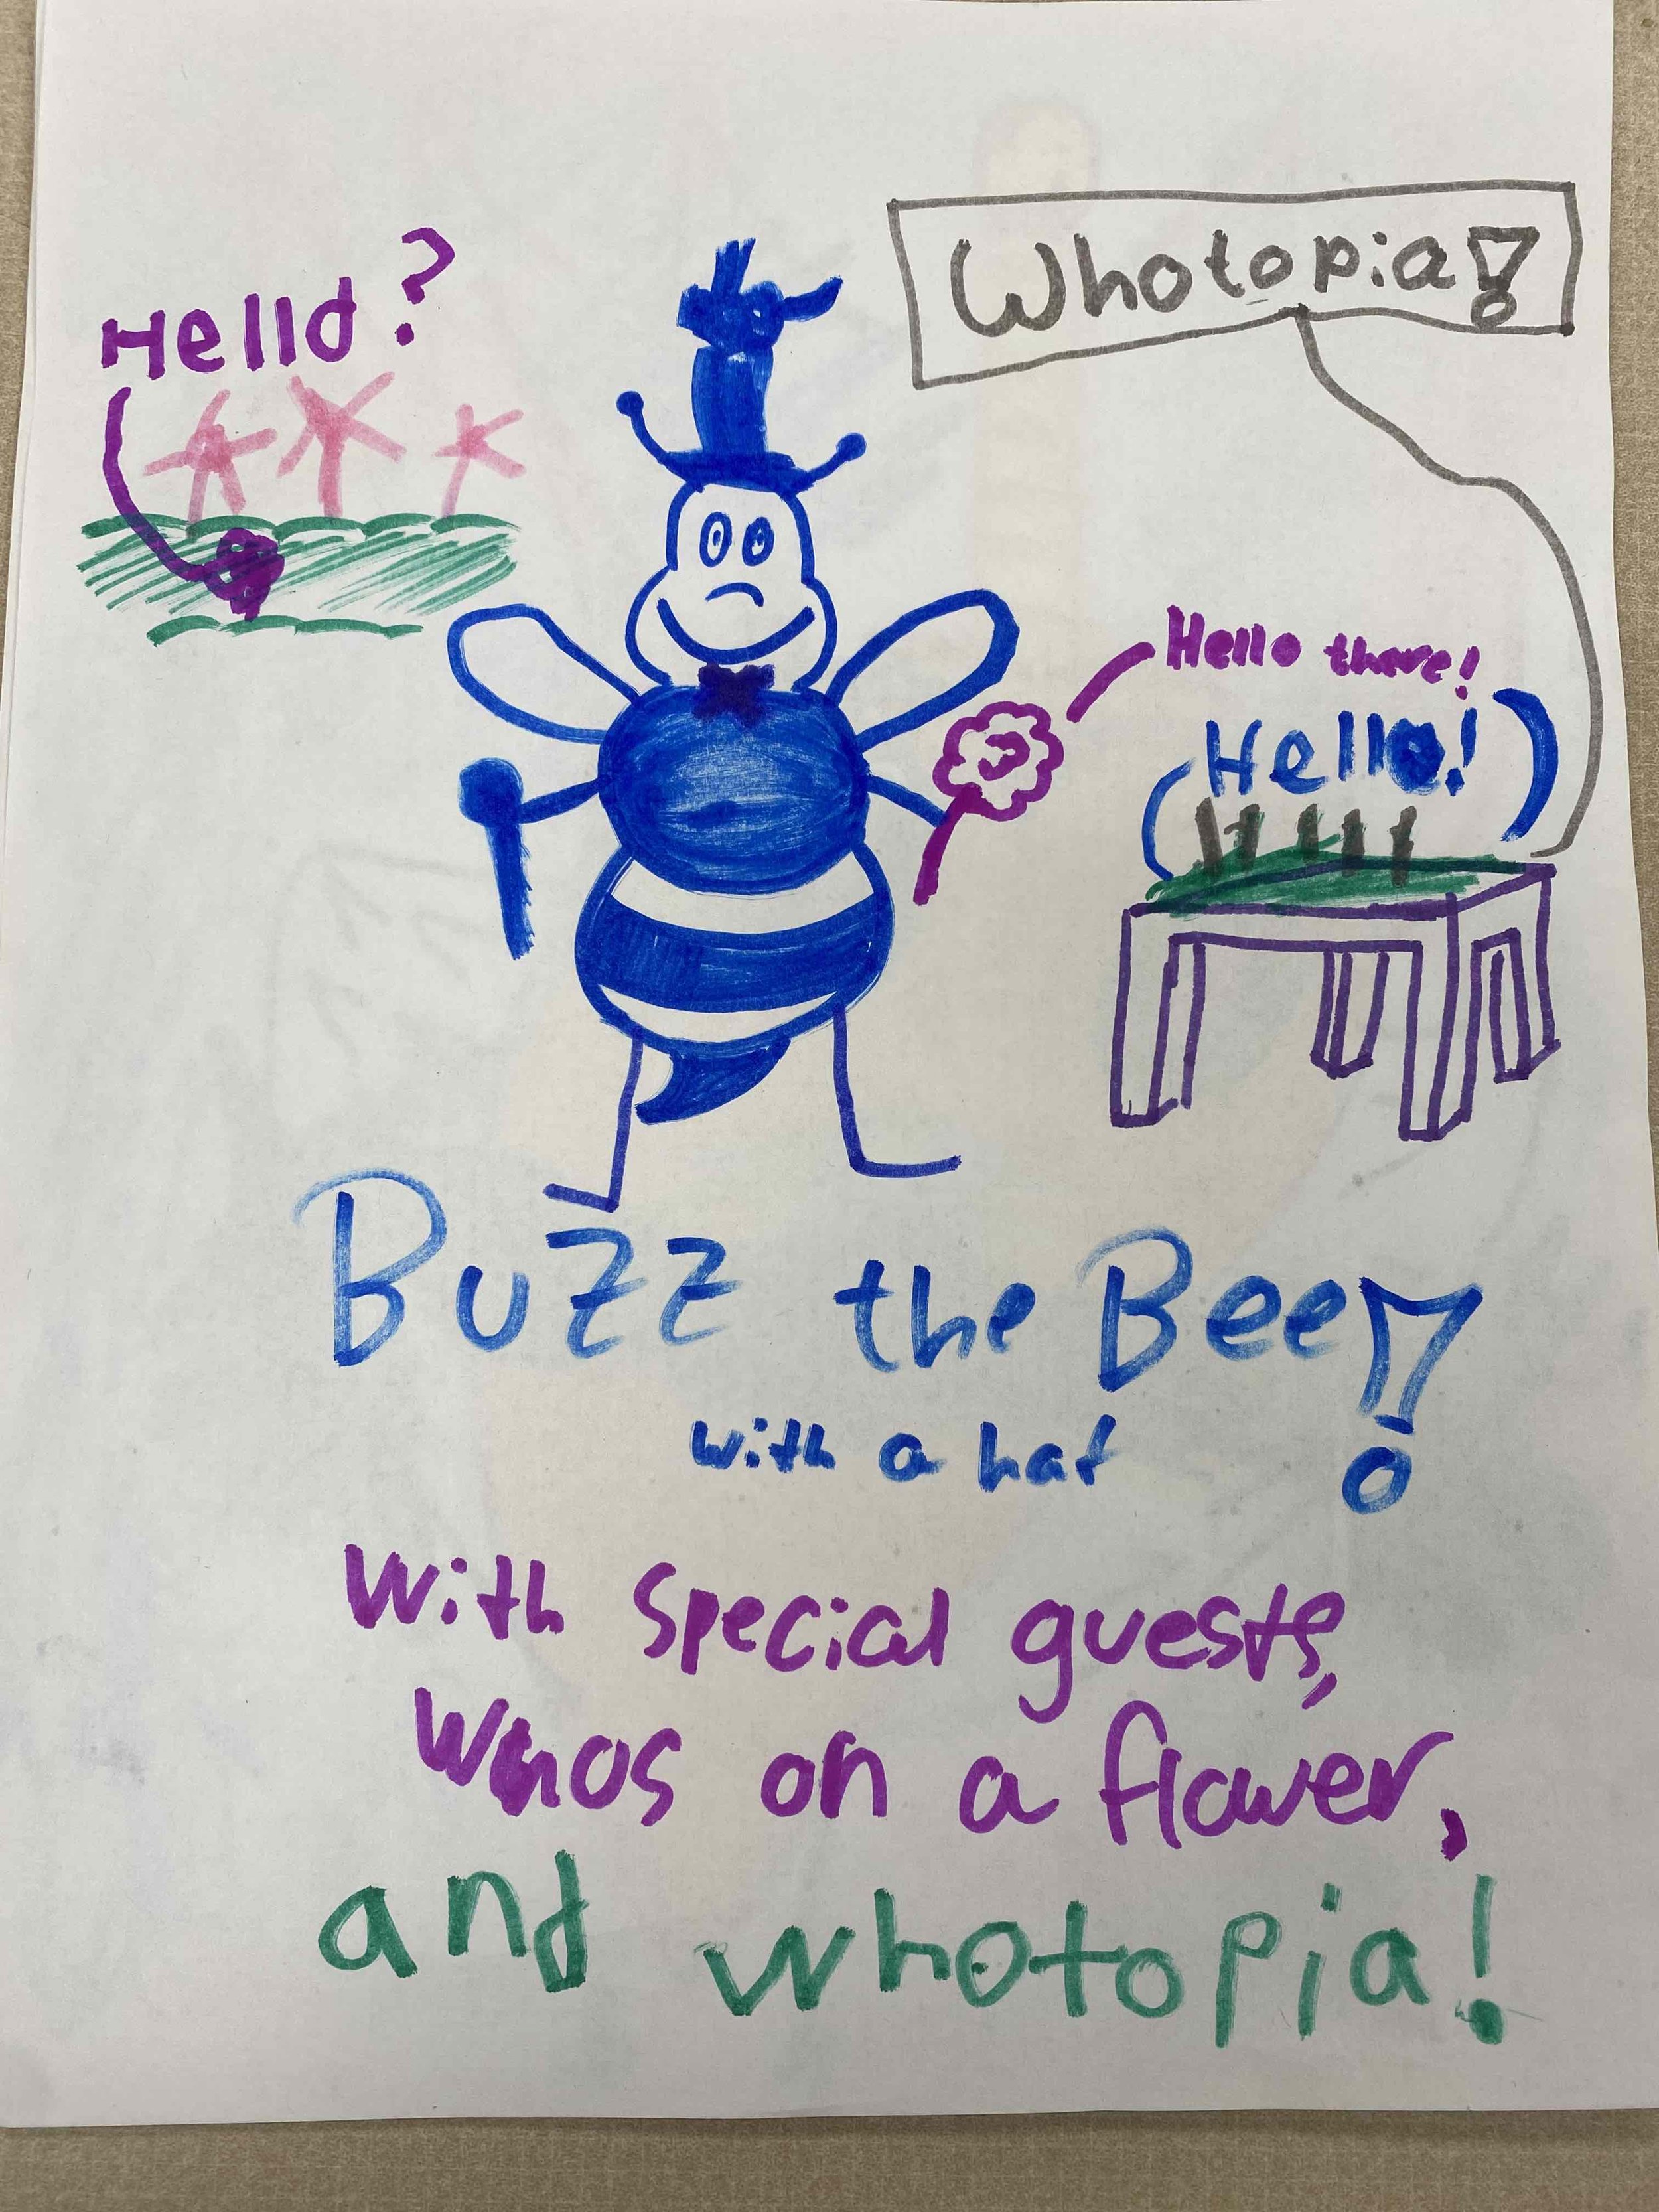 Whotopia!
Hello?
Hello there!
(Hello!)
Buzz the Bee!
with a hat
With special guests,
Whos on a flower,
and whotopia!